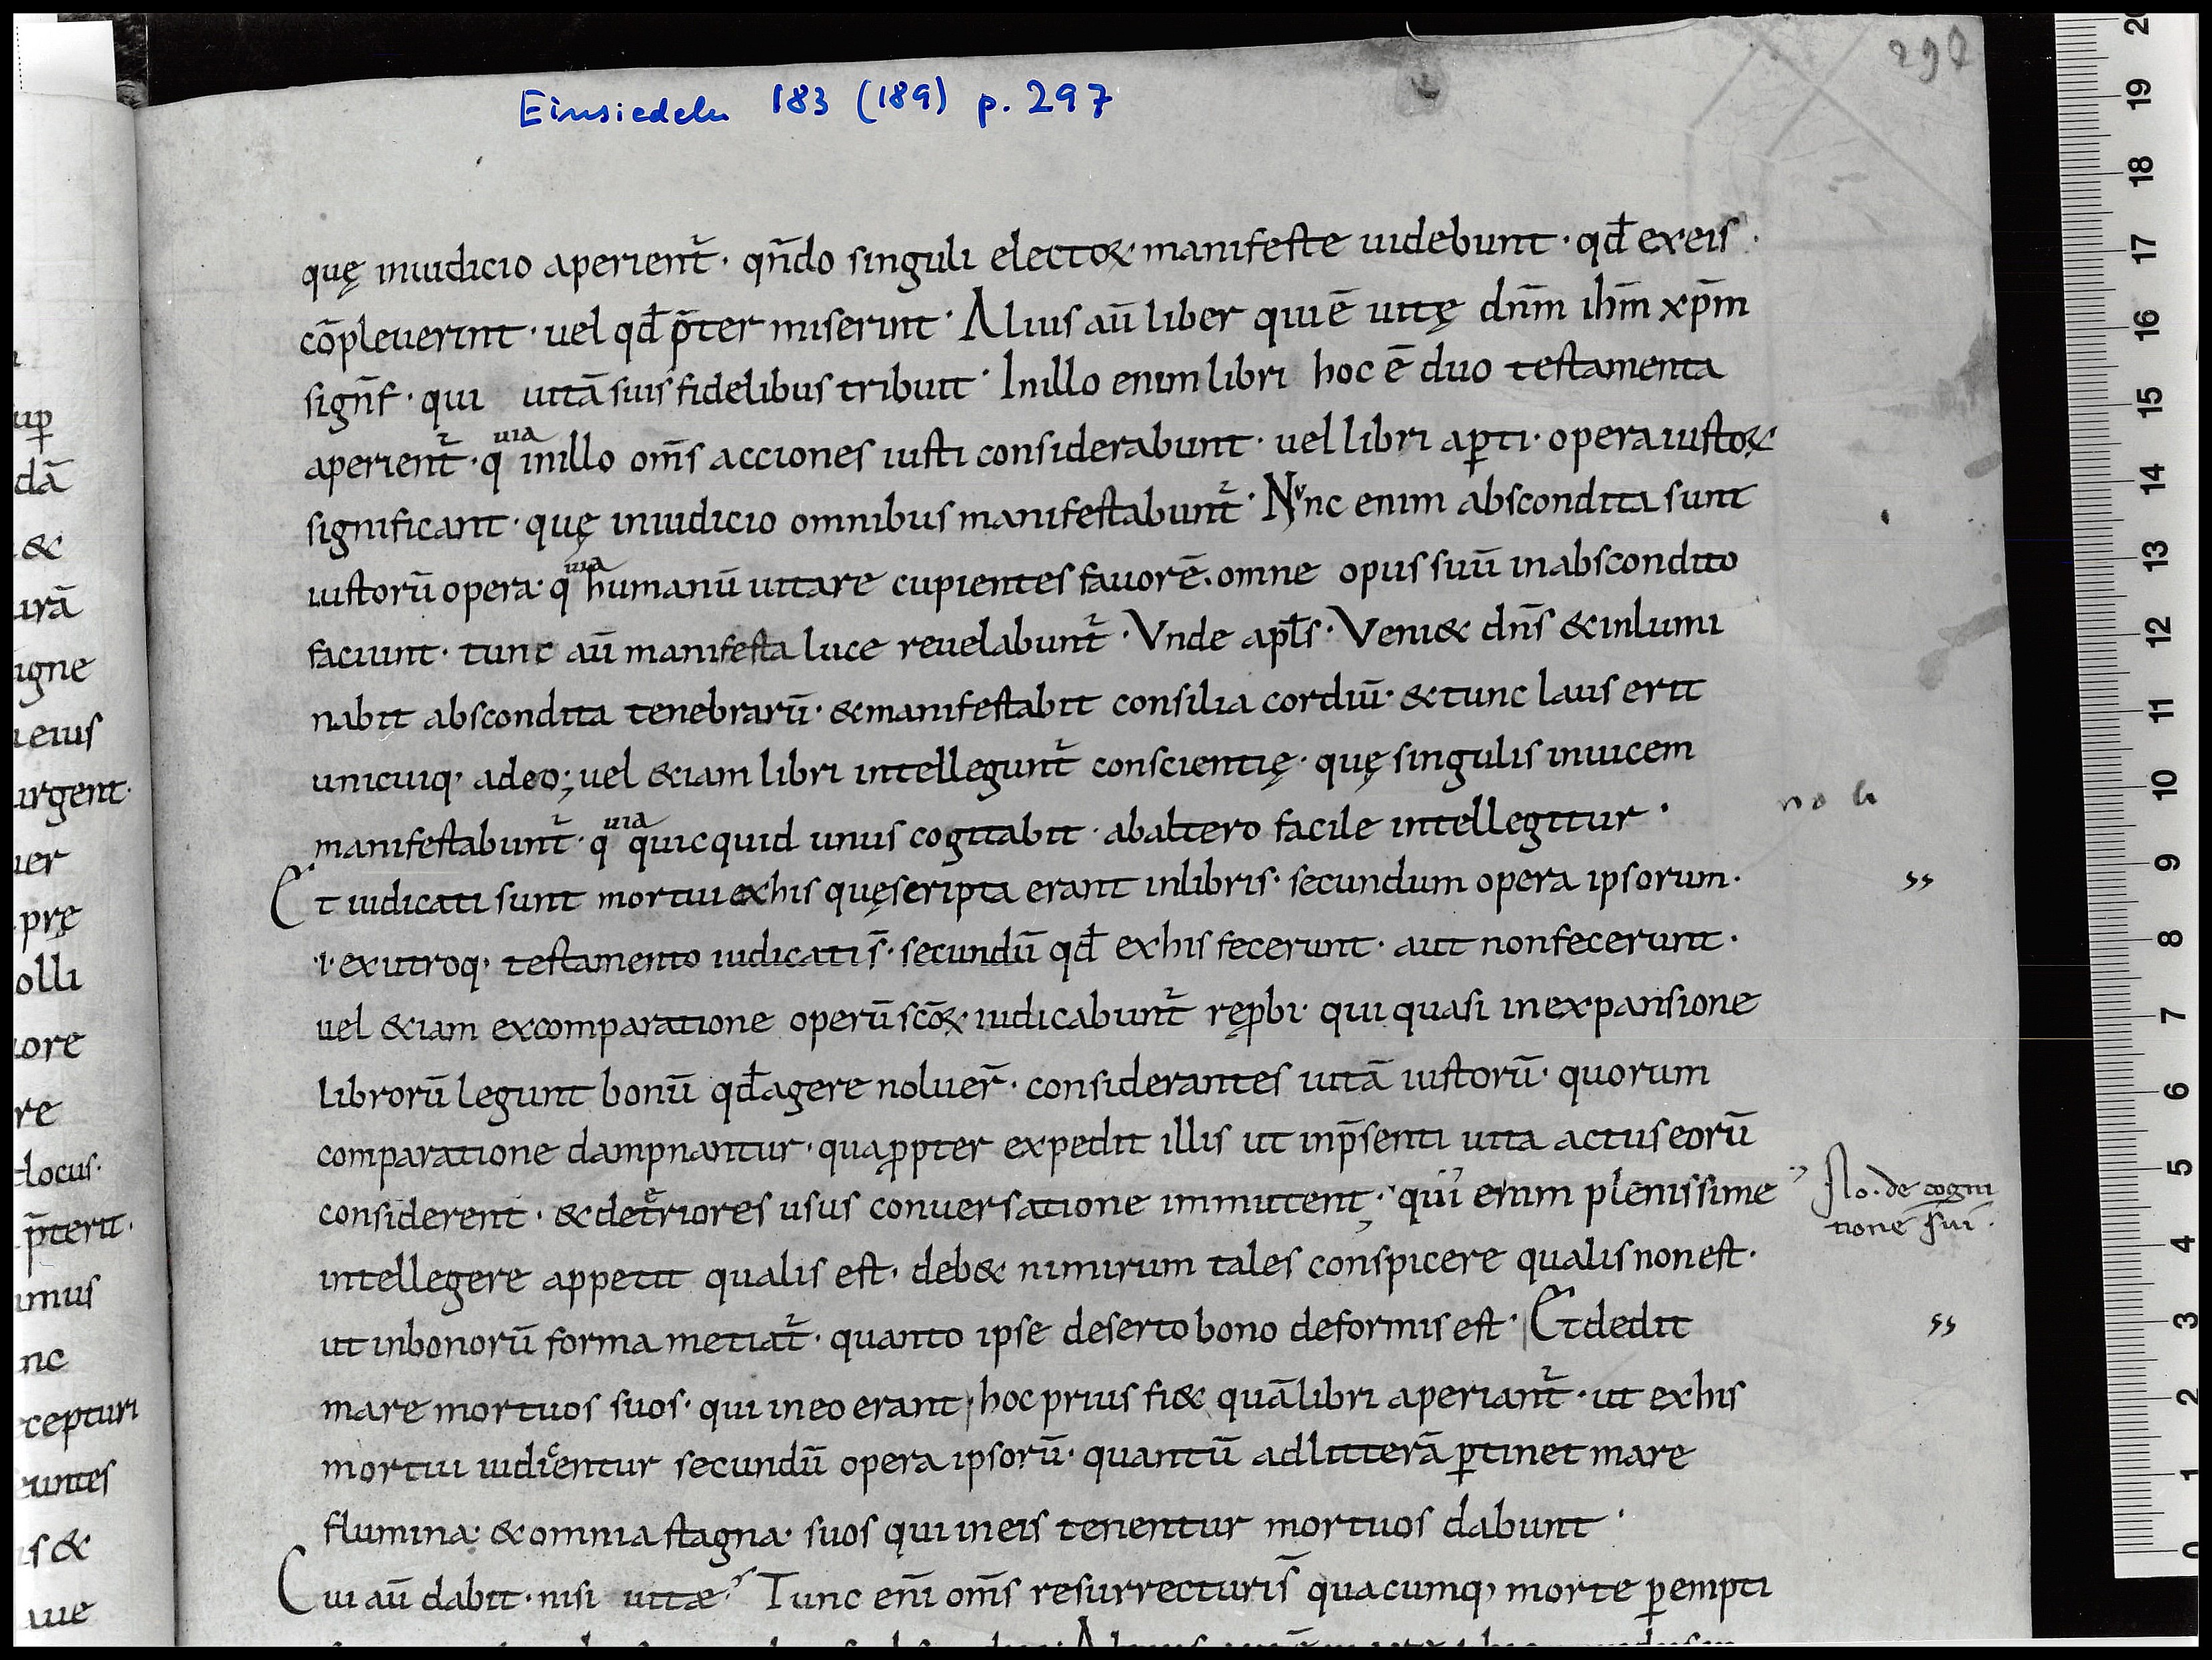 Einsiedeln 183 (189) p. 297
297
quę iniudicio aperient᷑· qn̄do singuli electoꝝ manifeste uidebunt· qd̄ exeis·
cōpleuerint· uel qd̄ p̄ter miserint· Alius aū liber qui ē uitę dn̄m ihm̄ xp̄m
sign̄f· qui uitā suis fidelibus tribuit· Inillo enim libri hoc ē duo testamenta
aperient᷑· quia inillo om̄s acciones iusti considerabunt· uel libri aꝑti· opera iustoꝝ
significant· quę iniudicio omnibus manifestabunt᷑· Nunc enim abscondita sunt
iustorū opera· quia humanū uitare cupientes fauorē· omne opus suū inabscondito
faciunt· tunc aū manifesta luce reuelabunt᷑· Vnde apl̄s· Veni& dn̄s &inlumi
nabit abscondita tenebrarū· &manifestabit consilia cordiū· &tunc laus erit
unicuiq· adeo; uel &iam libri intellegunt᷑ conscientię· quę singulis inuicem
manifestabunt᷑· quia quicquid unus cogitabit· abaltero facile intellegitur·
Et iudicati sunt mortui exhis quęscripta erant inlibris· secundum opera ipsorum·
·i· ex utroq· testamento iudicati s̄· secundū qd̄ exhis fecerunt· aut nonfecerunt·
uel &iam excomparatione operū scōꝝ iudicabunt᷑ reꝓbi· qui quasi inexpansione
librorū legunt bonū qd̄ agere noluer̄· considerantes uitā iustorū· quorum
comparatione dampnantur· quaꝓpter expedit illis ut inp̄senti uita actus eorū
considerent· &deteriores usus conuersatione immutent; qui enim plenissime
intellegere appetit qualis est· deb& nimirum tales conspicere qualis nonest·
ut inbonorū forma metiat᷑· quanto ipse deserto bono deformis est· Et dedit
mare mortuos suos· qui ineo erant; hoc prius fi& quā libri aperiant᷑· ut exhis
mortui iudicentur secundū opera ipsorū· quantū adlitterā ꝑtinet mare
flumina· &omnia stagna· suos qui ineis tenentur mortuos dabunt·
Cui aū dabit· nisi uitae? Tunc enī om̄s resurrecturi s̄ quacumq, morte ꝑempti
no a
ss
No· de cogni
tione sui·
ss
up̱
dā
&
urā
igne
eius
urgent·
uer
prę
olli
ore
re
locus·
p̄terit·
imus
nc
cepturi
untes
s &
aue
20
19
18
17
16
15
14
13
12
11
10
9
8
7
6
5
4
3
2
1
0